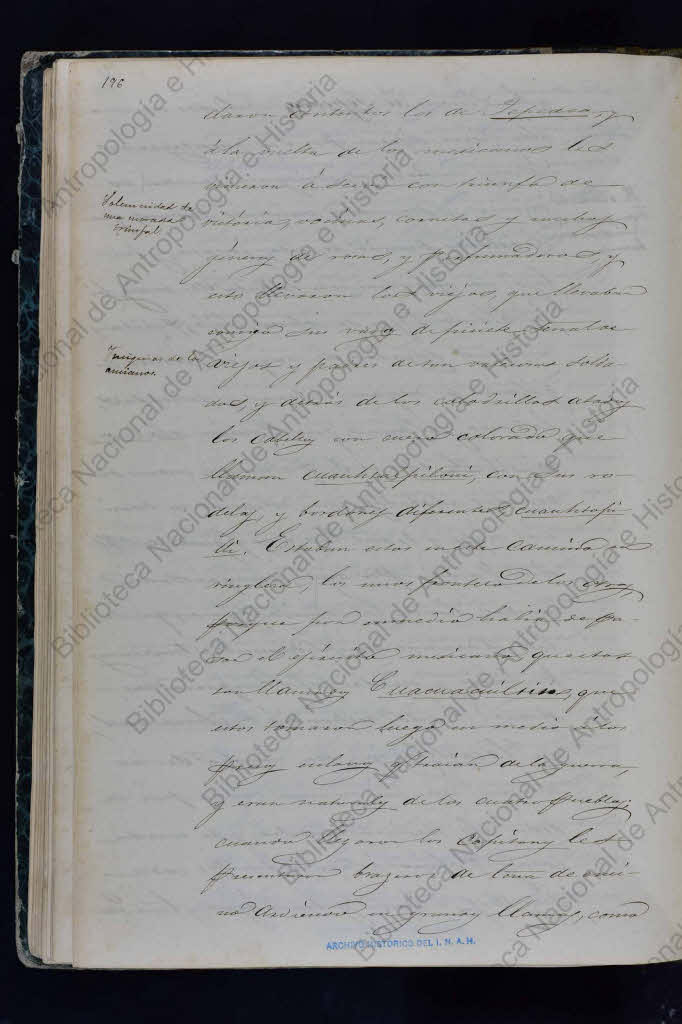 196
daron contentos los de Tepeaca, y
á la vuelta de los mexicanos les
vinieron á   con triunfo de
victoria, vocinas, cornetas y muchos
géneros de rosas, y perfumadores, y
esto hicieron los viejos, que llevaban
consigo sus   de   señal de
viejos y padres de tan valerosos solda-
dos, y detrás de los colodrillos atados
los cabellos con cuero colorado que
llaman cuauhtzalpiloni, con sus ro-
delas, y bordones diferentes, cuauhtopi-
li. Estaban estos en   camino en
ringlera, los unos frontero de los otros,
porque por en medio habia de pa-
sar el ejército mexicano, que estos
son llamados Cuacuacuiltin, que
estos tomaron luego en medio á los
presos   y traían de la guerra,
y eran naturales de los cuatro pueblos;
cuando llegaron los Capitanes les
presentaron braseros de   de
  ardiendo en grandes llamas, como
Solemnidad de
una   
triunfal
Insignias de los
ancianos.
ARCHIVO HISTORICO DEL I. N. A. H.
Biblioteca Nacional de Antropología e Historia